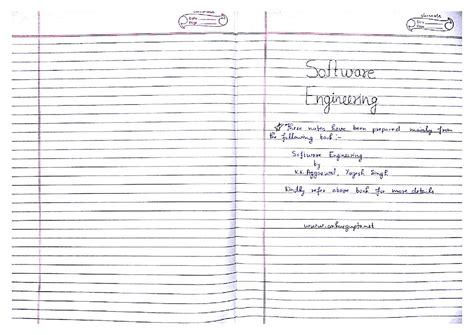 classmate
Date
Page
classmate
Date
Page
Software
Engineering
These notes have been prepared mainly from
the following book :-
Software Engineering
by
K.K. Aggarwal, Yogesh Singh
Kindly refer above book for more details